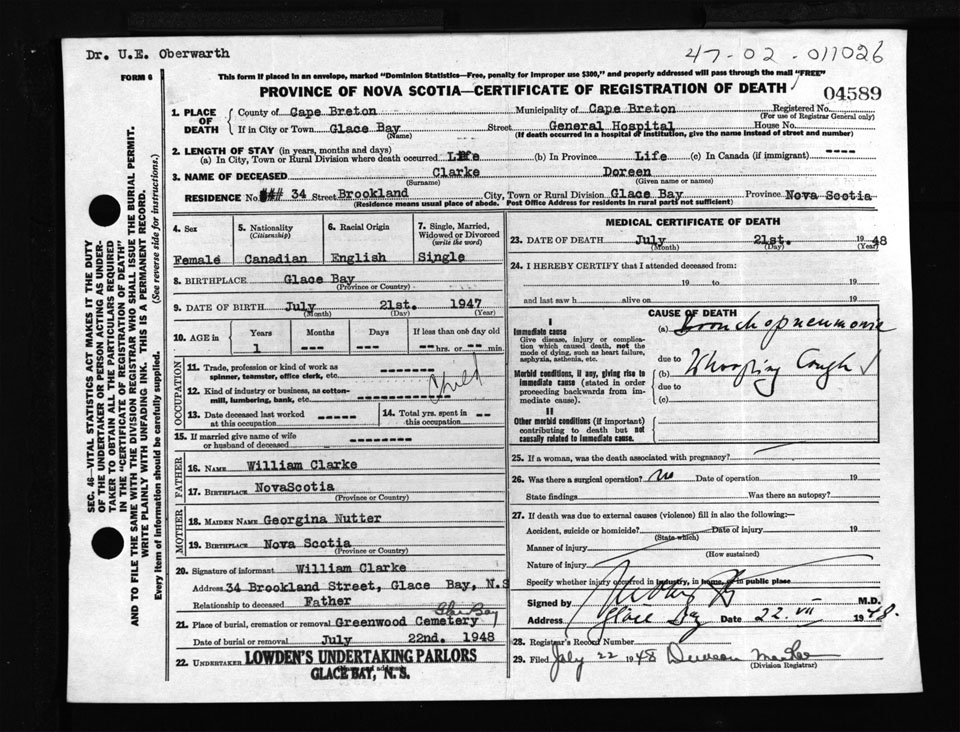 Dr. U.E. Oberwarth
47-02-011026
FORM 6
This form if placed in an envelope, marked "Dominion Statistics—Free, penalty for improper use $300," and properly addressed will pass through the mail "FREE"
PROVINCE OF NOVA SCOTIA—CERTIFICATE OF REGISTRATION OF DEATH
04589
1. PLACE OF DEATH
County of Cape Breton Municipality of Cape Breton Registered No.
(For use of Registrar General only)
If in City or Town Glace Bay Street General Hospital House No.
(Name) (If death occurred in a hospital or institution, give the name instead of street and number)
2. LENGTH OF STAY (in years, months and days)
(a) In City, Town or Rural Division where death occurred Life (b) In Province Life (c) In Canada (if immigrant) ----
3. NAME OF DECEASED Clarke Doreen
(Surname) (Given name or names)
RESIDENCE No. 34 Street Brookland City, Town or Rural Division Glace Bay Province Nova Scotia
(Residence means usual place of abode. Post Office Address for residents in rural parts not sufficient)
4. Sex Female
5. Nationality (Citizenship) Canadian
6. Racial Origin English
7. Single, Married, Widowed or Divorced (write the word) Single
8. BIRTHPLACE Glace Bay
(Province or Country)
9. DATE OF BIRTH July 21st. 1947
(Month) (Day) (Year)
10. AGE in Years Months Days If less than one day old
1 --- --- -- hrs. or -- min.
OCCUPATION
11. Trade, profession or kind of work as spinner, teamster, office clerk, etc.
12. Kind of industry or business, as cotton-mill, lumbering, bank, etc. --------- Child
13. Date deceased last worked at this occupation -----
14. Total yrs. spent in this occupation --
15. If married give name of wife or husband of deceased ---------
FATHER
16. NAME William Clarke
17. BIRTHPLACE NovaScotia
(Province or Country)
MOTHER
18. MAIDEN NAME Georgina Nutter
19. BIRTHPLACE Nova Scotia
(Province or Country)
20. Signature of informant William Clarke
Address 34 Brookland Street, Glace Bay, N.S
Relationship to deceased Father
21. Place of burial, cremation or removal Greenwood Cemetery Glace Bay
Date of burial or removal July 22nd. 1948
22. UNDERTAKER LOWDEN'S UNDERTAKING PARLORS
GLACE BAY, N.S.
MEDICAL CERTIFICATE OF DEATH
23. DATE OF DEATH July 21st. 1948
(Month) (Day) (Year)
24. I HEREBY CERTIFY that I attended deceased from:
19 to 19
and last saw h alive on 19
CAUSE OF DEATH
I
Immediate cause
Give disease, injury or complication which caused death, not the mode of dying, such as heart failure, asphyxia, asthenia, etc.
(a) Bronchopneumonia
due to
Morbid conditions, if any, giving rise to immediate cause (stated in order proceeding backwards from immediate cause).
(b) Whooping Cough
due to
(c)
II
Other morbid conditions (if important) contributing to death but not causally related to immediate cause.
25. If a woman, was the death associated with pregnancy?
26. Was there a surgical operation? no Date of operation 19
State findings Was there an autopsy?
27. If death was due to external causes (violence) fill in also the following:—
Accident, suicide or homicide? Date of injury 19
(State which)
Manner of injury
(How sustained)
Nature of injury
Specify whether injury occurred in industry, in home, or in public place
Signed by M.D.
Address Glace Bay Date 22. VII 1948.
28. Registrar's Record Number
29. Filed July 22 1948
(Division Registrar)
SEC. 46—VITAL STATISTICS ACT MAKES IT THE DUTY
OF THE UNDERTAKER OR PERSON ACTING AS UNDER-
TAKER TO OBTAIN ALL THE PARTICULARS REQUIRED
IN THE "CERTIFICATE OF REGISTRATION OF DEATH"
AND TO FILE THE SAME WITH THE DIVISION REGISTRAR WHO SHALL ISSUE THE BURIAL PERMIT.
WRITE PLAINLY WITH UNFADING INK. THIS IS A PERMANENT RECORD.
Every item of information should be carefully supplied. (See reverse side for instructions.)